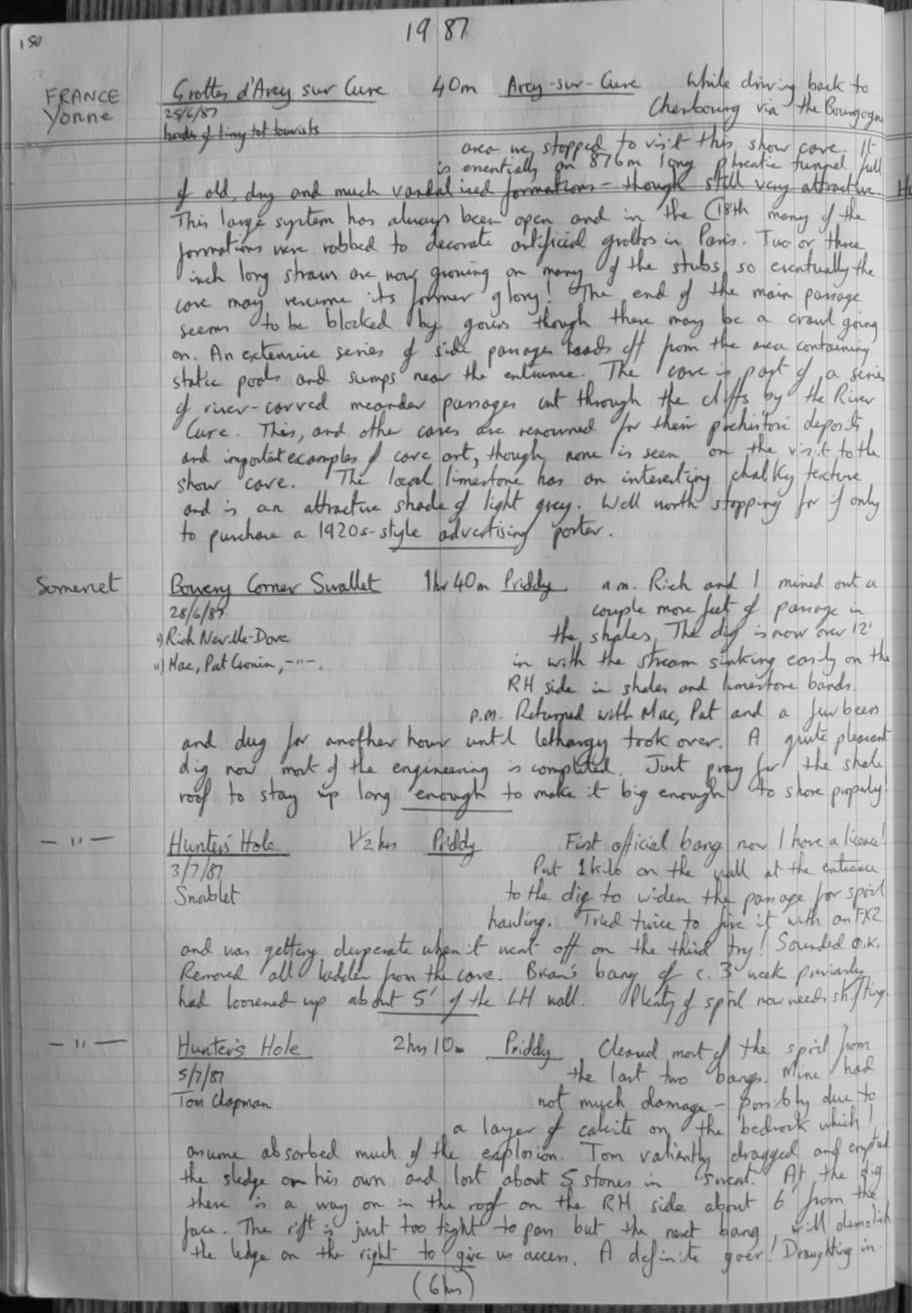 150
1987
FRANCE
Yonne
Grottes d'Arcy sur Cure 40m Arcy-sur-Cure While driving back to
25/6/87 Cherbourg via the Bourgogne
hordes of tiny tot tourists
area we stopped to visit this show cave. It
is essentially an 876m long phreatic tunnel full
of old, dry and much vandalised formations - though still very attractive.
This large system has always been open and in the C18th many of the
formations were robbed to decorate artificial grottos in Paris. Two or three
inch long straws are now growing on many of the stubs so eventually the
cave may resume its former glory! The end of the main passage
seems to be blocked by gours though there may be a crawl going
on. An extensive series of side passages leads off from the area containing
static pools and sumps near the entrance. The cave is part of a series
of river-carved meander passages cut through the cliffs by the River
Cure. This, and other caves are renowned for their prehistoric deposits
and important examples of cave art, though none is seen on the visit to the
show cave. The local limestone has an interesting chalky texture
and is an attractive shade of light grey. Well worth stopping for if only
to purchase a 1920s-style advertising poster.
Somerset
Bowery Corner Swallet 1hr 40m Priddy a.m. Rich and I mined out a
28/6/87 couple more feet of passage in
i) Rich Neville-Dove the shales. The dig is now over 12'
ii) Mac, Pat Cronin, -"-. in with the stream sinking easily on the
RH side in shales and limestone bands.
p.m. Returned with Mac, Pat and a few beers
and dug for another hour until lethargy took over. A quite pleasant
dig now most of the engineering is completed. Just pray for the shale
roof to stay up long enough to make it big enough to shore properly!
-"-
Hunter's Hole 1½ hrs Priddy First official bang now I have a licence!
3/7/87 Put 1 kilo on the wall at the entrance
Snablet to the dig to widen the passage for spoil
hauling. Tried twice to fire it with an EXZ
and was getting desperate when it went off on the third try! Sounded O.K.
Removed all ladder from the cave. Brian's bang of c. 3 week previously
had loosened up about 5' of the LH wall. Plenty of spoil now needs shifting.
-"-
Hunter's Hole 2hrs 10m Priddy Cleared most of the spoil from
5/7/87 the last two bangs. Mine had
Tom Chapman not much damage - possibly due to
a layer of calcite on the bedrock which I
assume absorbed much of the explosion. Tom valiantly dragged and emptied
the sledge on his own and lost about 5 stones in sweat. At the dig
there is a way on in the roof on the RH side about 6' from the
face. The rift is just too tight to pass but the next bang will demolish
the ledge on the right to give us access. A definite goer! Draughting in.
(6hrs)